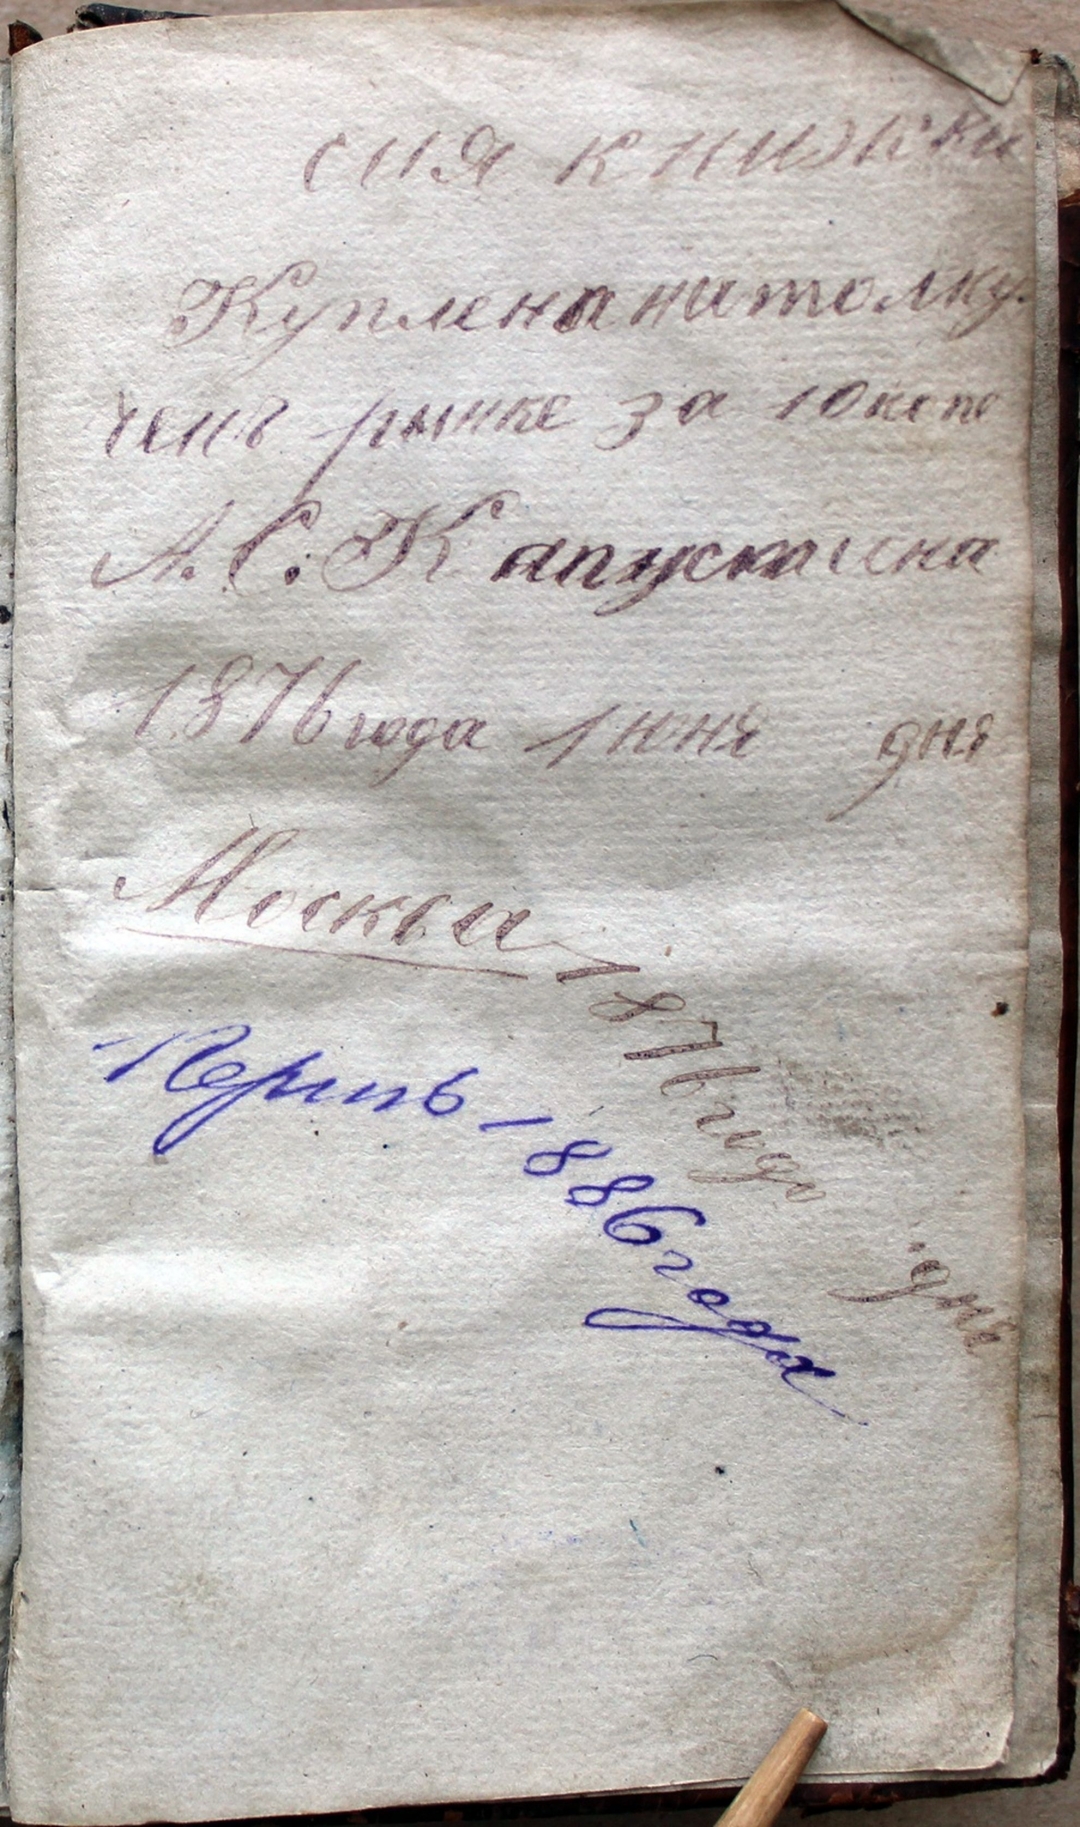 сия книжка
Куплена на толку.
чемъ рынке за 10 копе
А. С. Капускина
1876 года 1 июня дня
Москва 1876 года дня
Пермь 1886 года